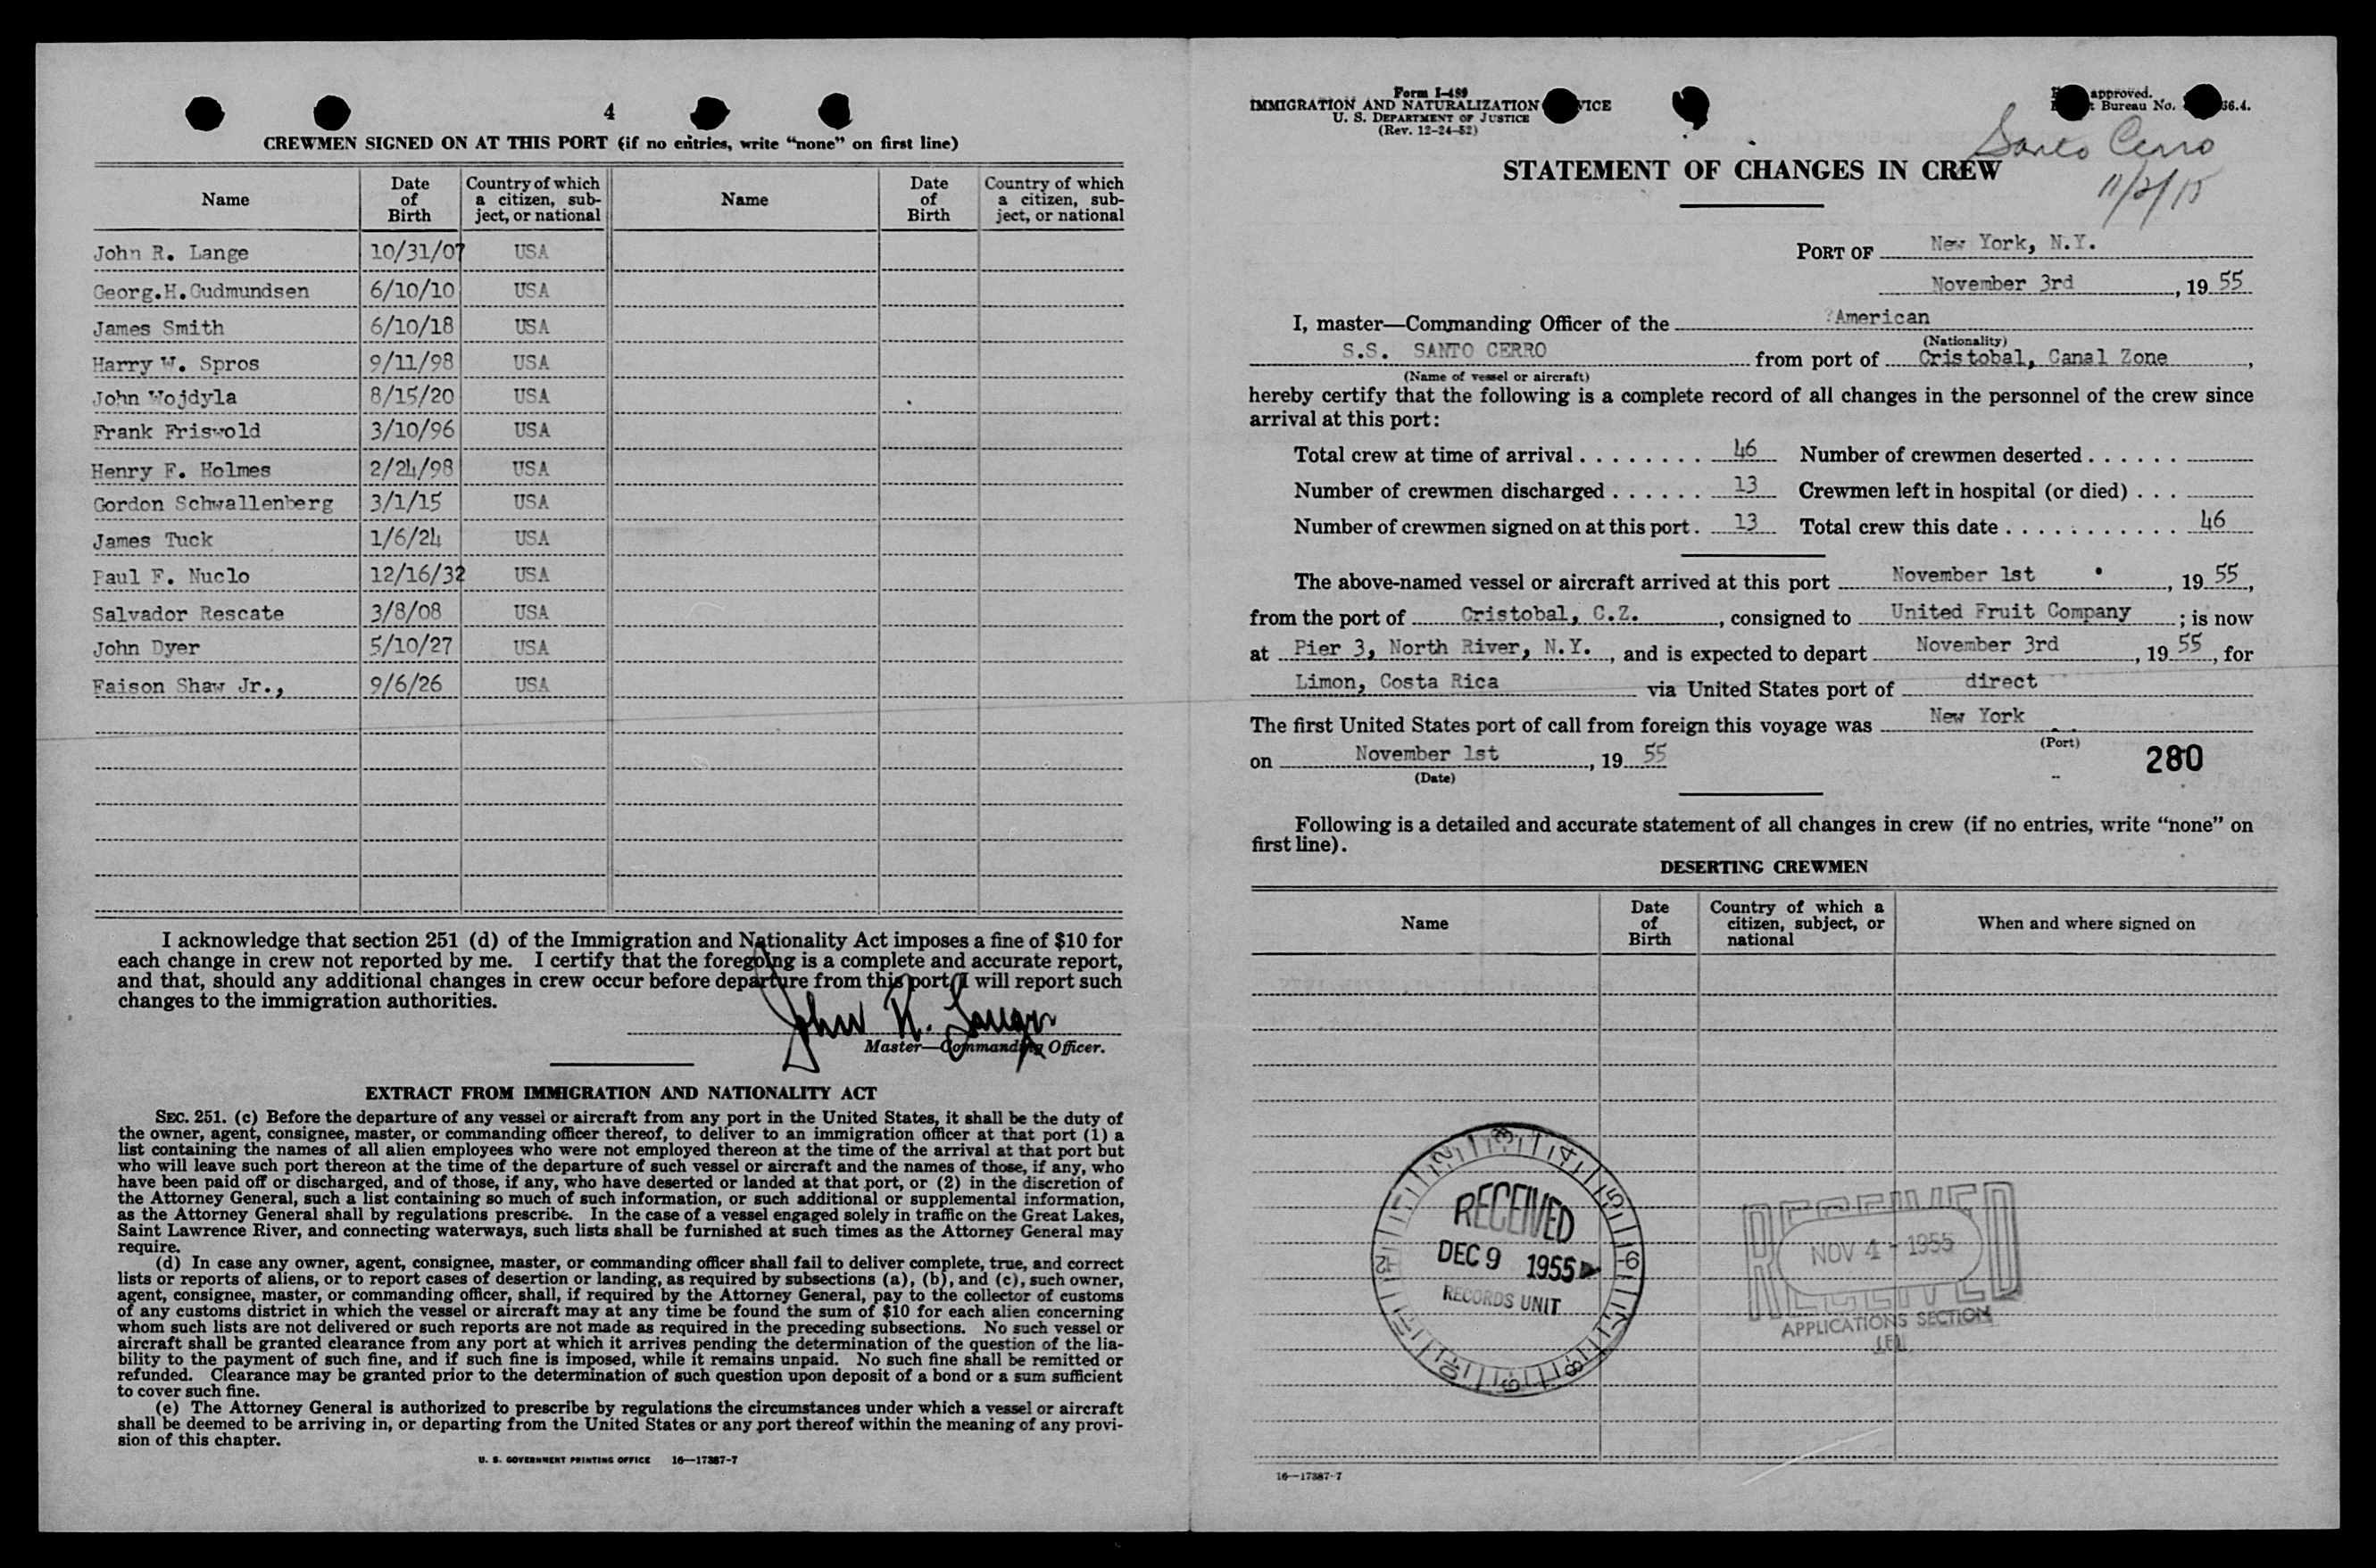 4
CREWMEN SIGNED ON AT THIS PORT (if no entries, write “none” on first line)
Name Date of Birth Country of which a citizen, subject, or national Name Date of Birth Country of which a citizen, subject, or national
John R. Lange 10/31/07 USA
Georg.H.Gudmundsen 6/10/10 USA
James Smith 6/10/18 USA
Harry W. Spros 9/11/98 USA
John Wojdyla 8/15/20 USA
Frank Friswold 3/10/96 USA
Henry F. Holmes 2/24/98 USA
Gordon Schwallenberg 3/1/15 USA
James Tuck 1/6/24 USA
Paul F. Nuclo 12/16/32 USA
Salvador Rescate 3/8/08 USA
John Dyer 5/10/27 USA
Faison Shaw Jr., 9/6/26 USA
I acknowledge that section 251 (d) of the Immigration and Nationality Act imposes a fine of $10 for
each change in crew not reported by me. I certify that the foregoing is a complete and accurate report,
and that, should any additional changes in crew occur before departure from this port, I will report such
changes to the immigration authorities.
John R. Lange
Master—Commanding Officer.
EXTRACT FROM IMMIGRATION AND NATIONALITY ACT
SEC. 251. (c) Before the departure of any vessel or aircraft from any port in the United States, it shall be the duty of
the owner, agent, consignee, master, or commanding officer thereof, to deliver to an immigration officer at that port (1) a
list containing the names of all alien employees who were not employed thereon at the time of the arrival at that port but
who will leave such port thereon at the time of the departure of such vessel or aircraft and the names of those, if any, who
have been paid off or discharged, and of those, if any, who have deserted or landed at that port, or (2) in the discretion of
the Attorney General, such a list containing so much of such information, or such additional or supplemental information,
as the Attorney General shall by regulations prescribe. In the case of a vessel engaged solely in traffic on the Great Lakes,
Saint Lawrence River, and connecting waterways, such lists shall be furnished at such times as the Attorney General may
require.
(d) In case any owner, agent, consignee, master, or commanding officer shall fail to deliver complete, true, and correct
lists or reports of aliens, or to report cases of desertion or landing, as required by subsections (a), (b), and (c), such owner,
agent, consignee, master, or commanding officer, shall, if required by the Attorney General, pay to the collector of customs
of any customs district in which the vessel or aircraft may at any time be found the sum of $10 for each alien concerning
whom such lists are not delivered or such reports are not made as required in the preceding subsections. No such vessel or
aircraft shall be granted clearance from any port at which it arrives pending the determination of the question of the lia-
bility to the payment of such fine, and if such fine is imposed, while it remains unpaid. No such fine shall be remitted or
refunded. Clearance may be granted prior to the determination of such question upon deposit of a bond or a sum sufficient
to cover such fine.
(e) The Attorney General is authorized to prescribe by regulations the circumstances under which a vessel or aircraft
shall be deemed to be arriving in, or departing from the United States or any port thereof within the meaning of any provi-
sion of this chapter.
U. S. GOVERNMENT PRINTING OFFICE 16—17387-7
Form I-489
IMMIGRATION AND NATURALIZATION
U. S. DEPARTMENT OF JUSTICE
(Rev. 12-24-52)
approved.
Bureau No. 36.4.
Santo Cerro
STATEMENT OF CHANGES IN CREW
PORT OF New York, N.Y.
November 3rd, 19 55
I, master—Commanding Officer of the American
(Nationality)
S.S. SANTO CERRO from port of Cristobal, Canal Zone,
(Name of vessel or aircraft)
hereby certify that the following is a complete record of all changes in the personnel of the crew since
arrival at this port:
Total crew at time of arrival 46 Number of crewmen deserted
Number of crewmen discharged 13 Crewmen left in hospital (or died)
Number of crewmen signed on at this port. 13 Total crew this date 46
The above-named vessel or aircraft arrived at this port November 1st, 19 55,
from the port of Cristobal, C.Z., consigned to United Fruit Company; is now
at Pier 3, North River, N.Y., and is expected to depart November 3rd, 19 55, for
Limon, Costa Rica via United States port of direct
The first United States port of call from foreign this voyage was New York
(Port)
on November 1st, 19 55
(Date)
280
Following is a detailed and accurate statement of all changes in crew (if no entries, write “none” on
first line).
DESERTING CREWMEN
Name Date of Birth Country of which a citizen, subject, or national When and where signed on
RECEIVED
DEC 9 1955
RECORDS UNIT
RECEIVED
NOV 4 - 1955
APPLICATIONS SECTION
16—17387-7